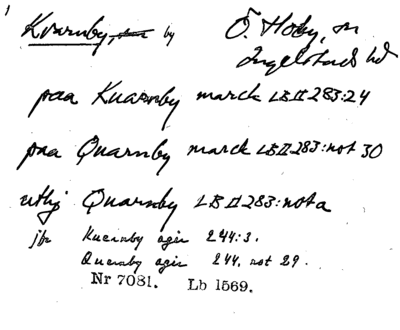 1
Kvarnby, by Ö. Hoby, sn
Ingelstads hd
paa Kuarnby marck LB II 283:24
paa Quarnby marck LB II 283: not 30
uthj Quarnby LB II 283: not a
jfr Kuernby agir 244:3.
Quernby agir 244, not 29.
Nr 7081. Lb 1569.